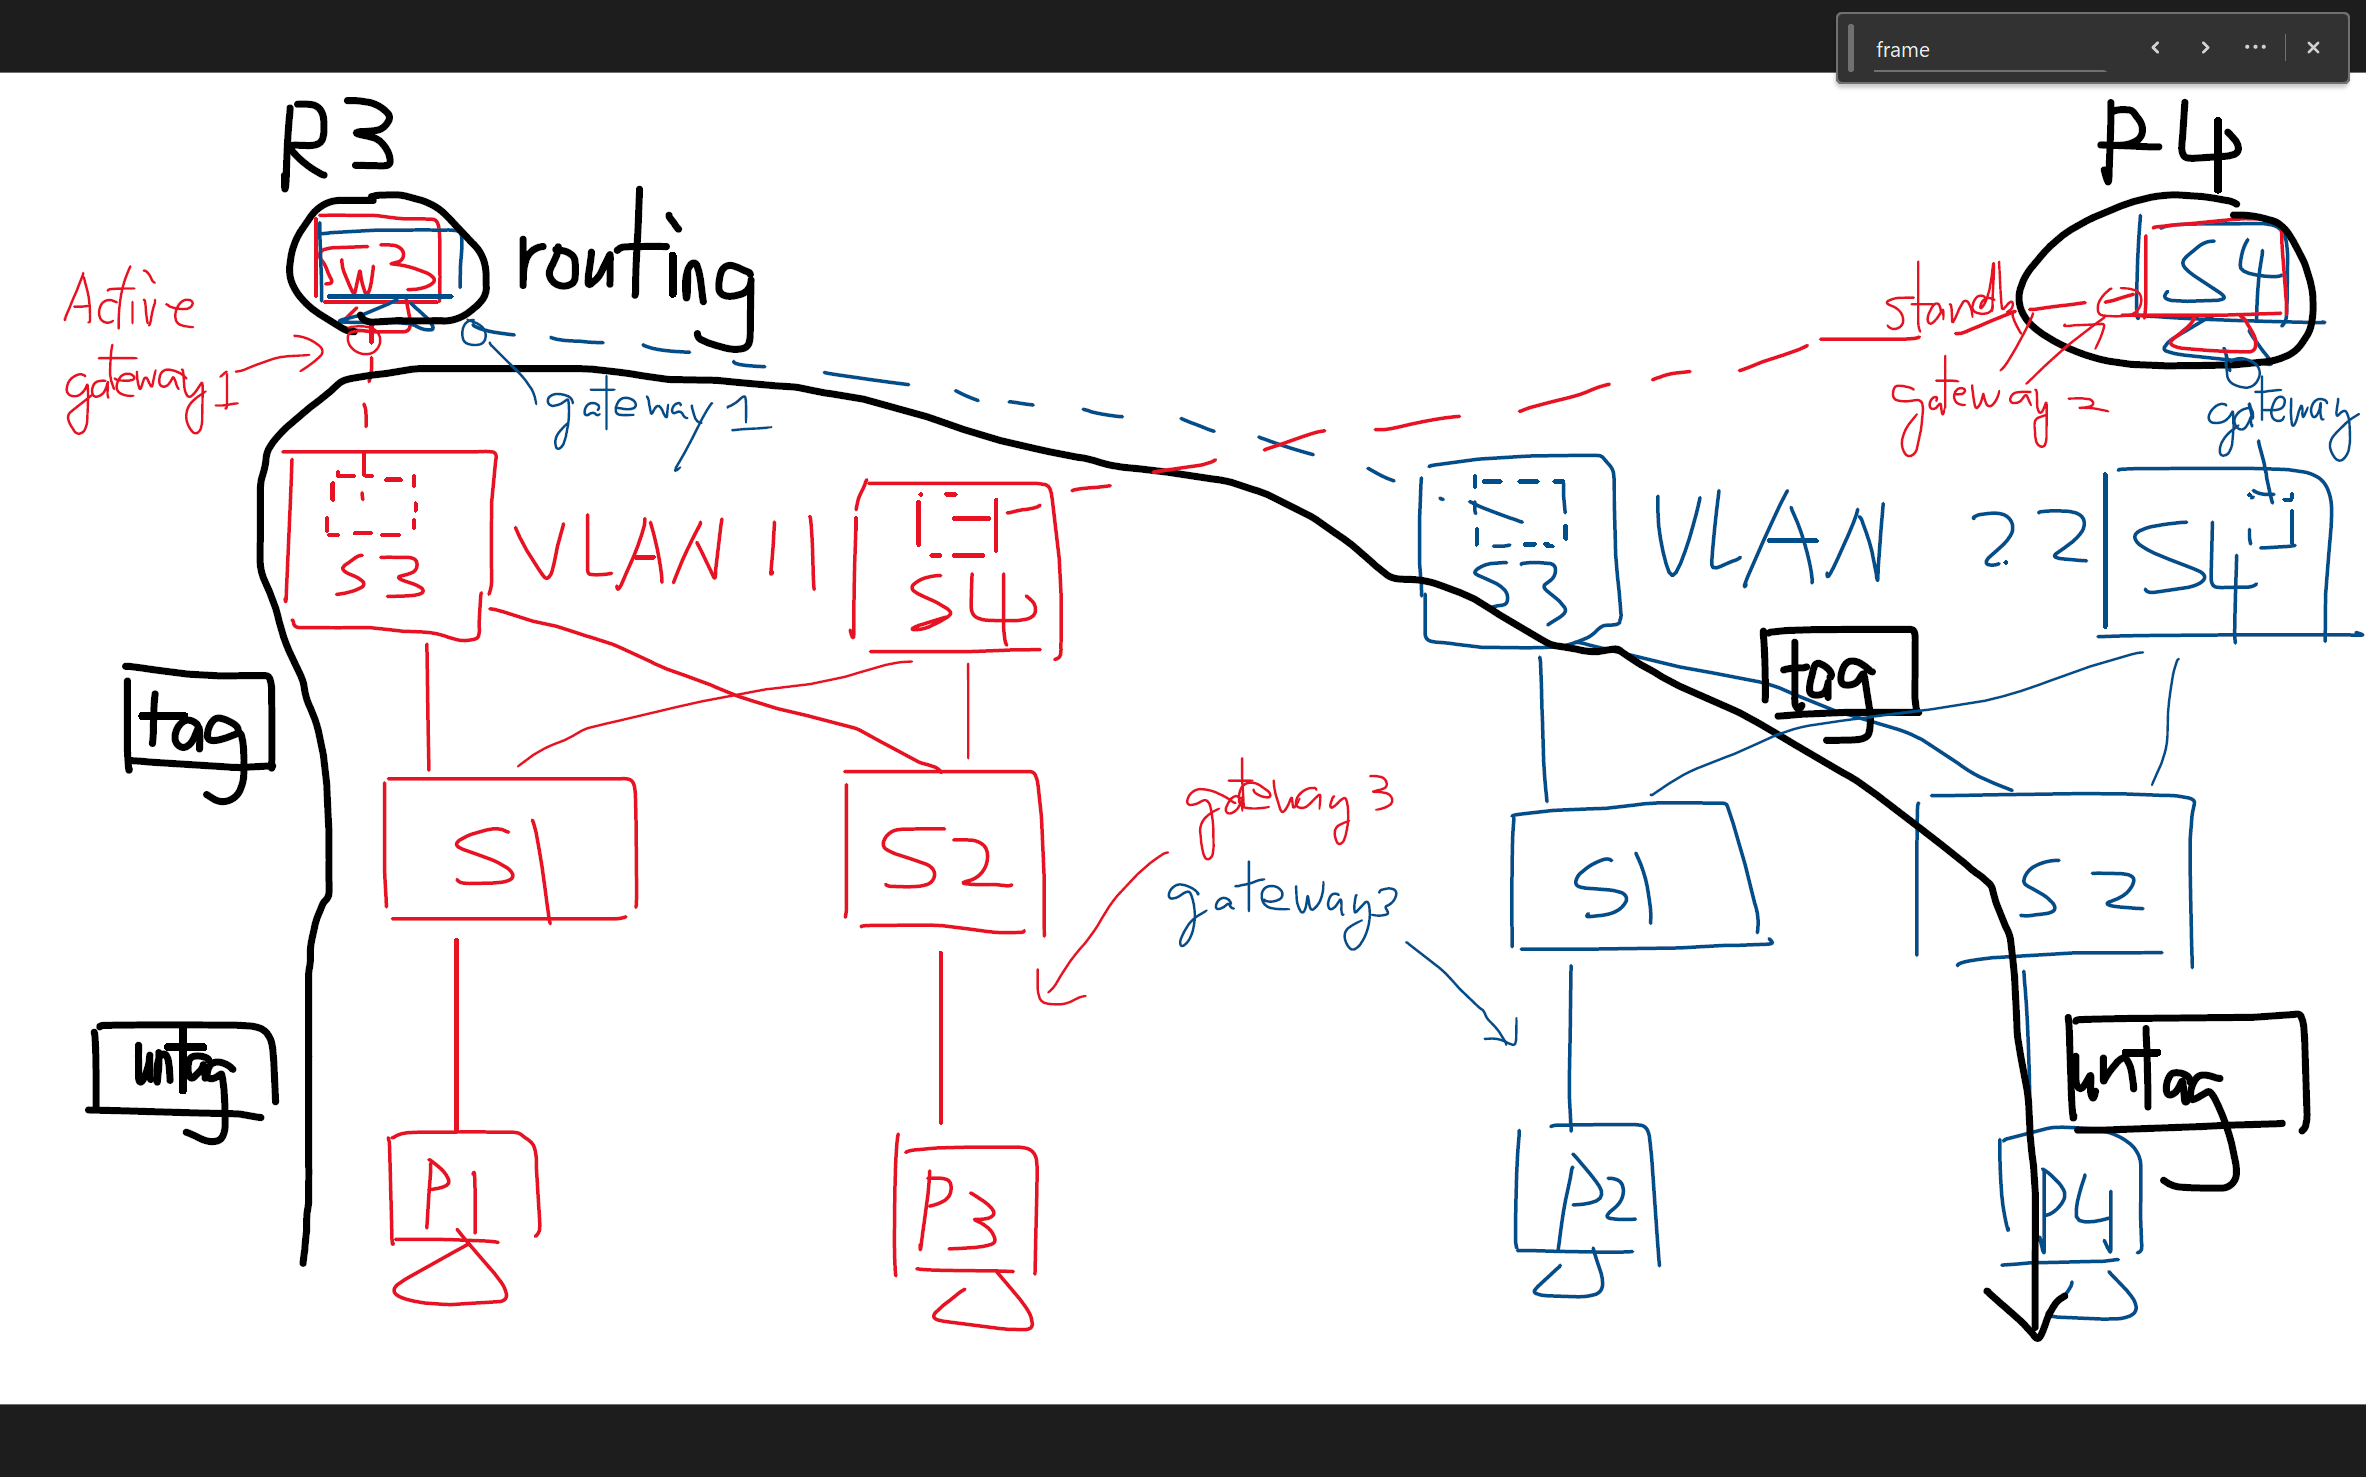 frame
R3
R4
sw3
routing
S4
Active
gateway 1
gateway 1
standb
gateway 2
gateway
S3
VLAN 11
S4
S3
VLAN 22
S4
tag
tag
S1
S2
gateway 3
gateway 3
S1
S2
untag
untag
P1
P3
P2
P4